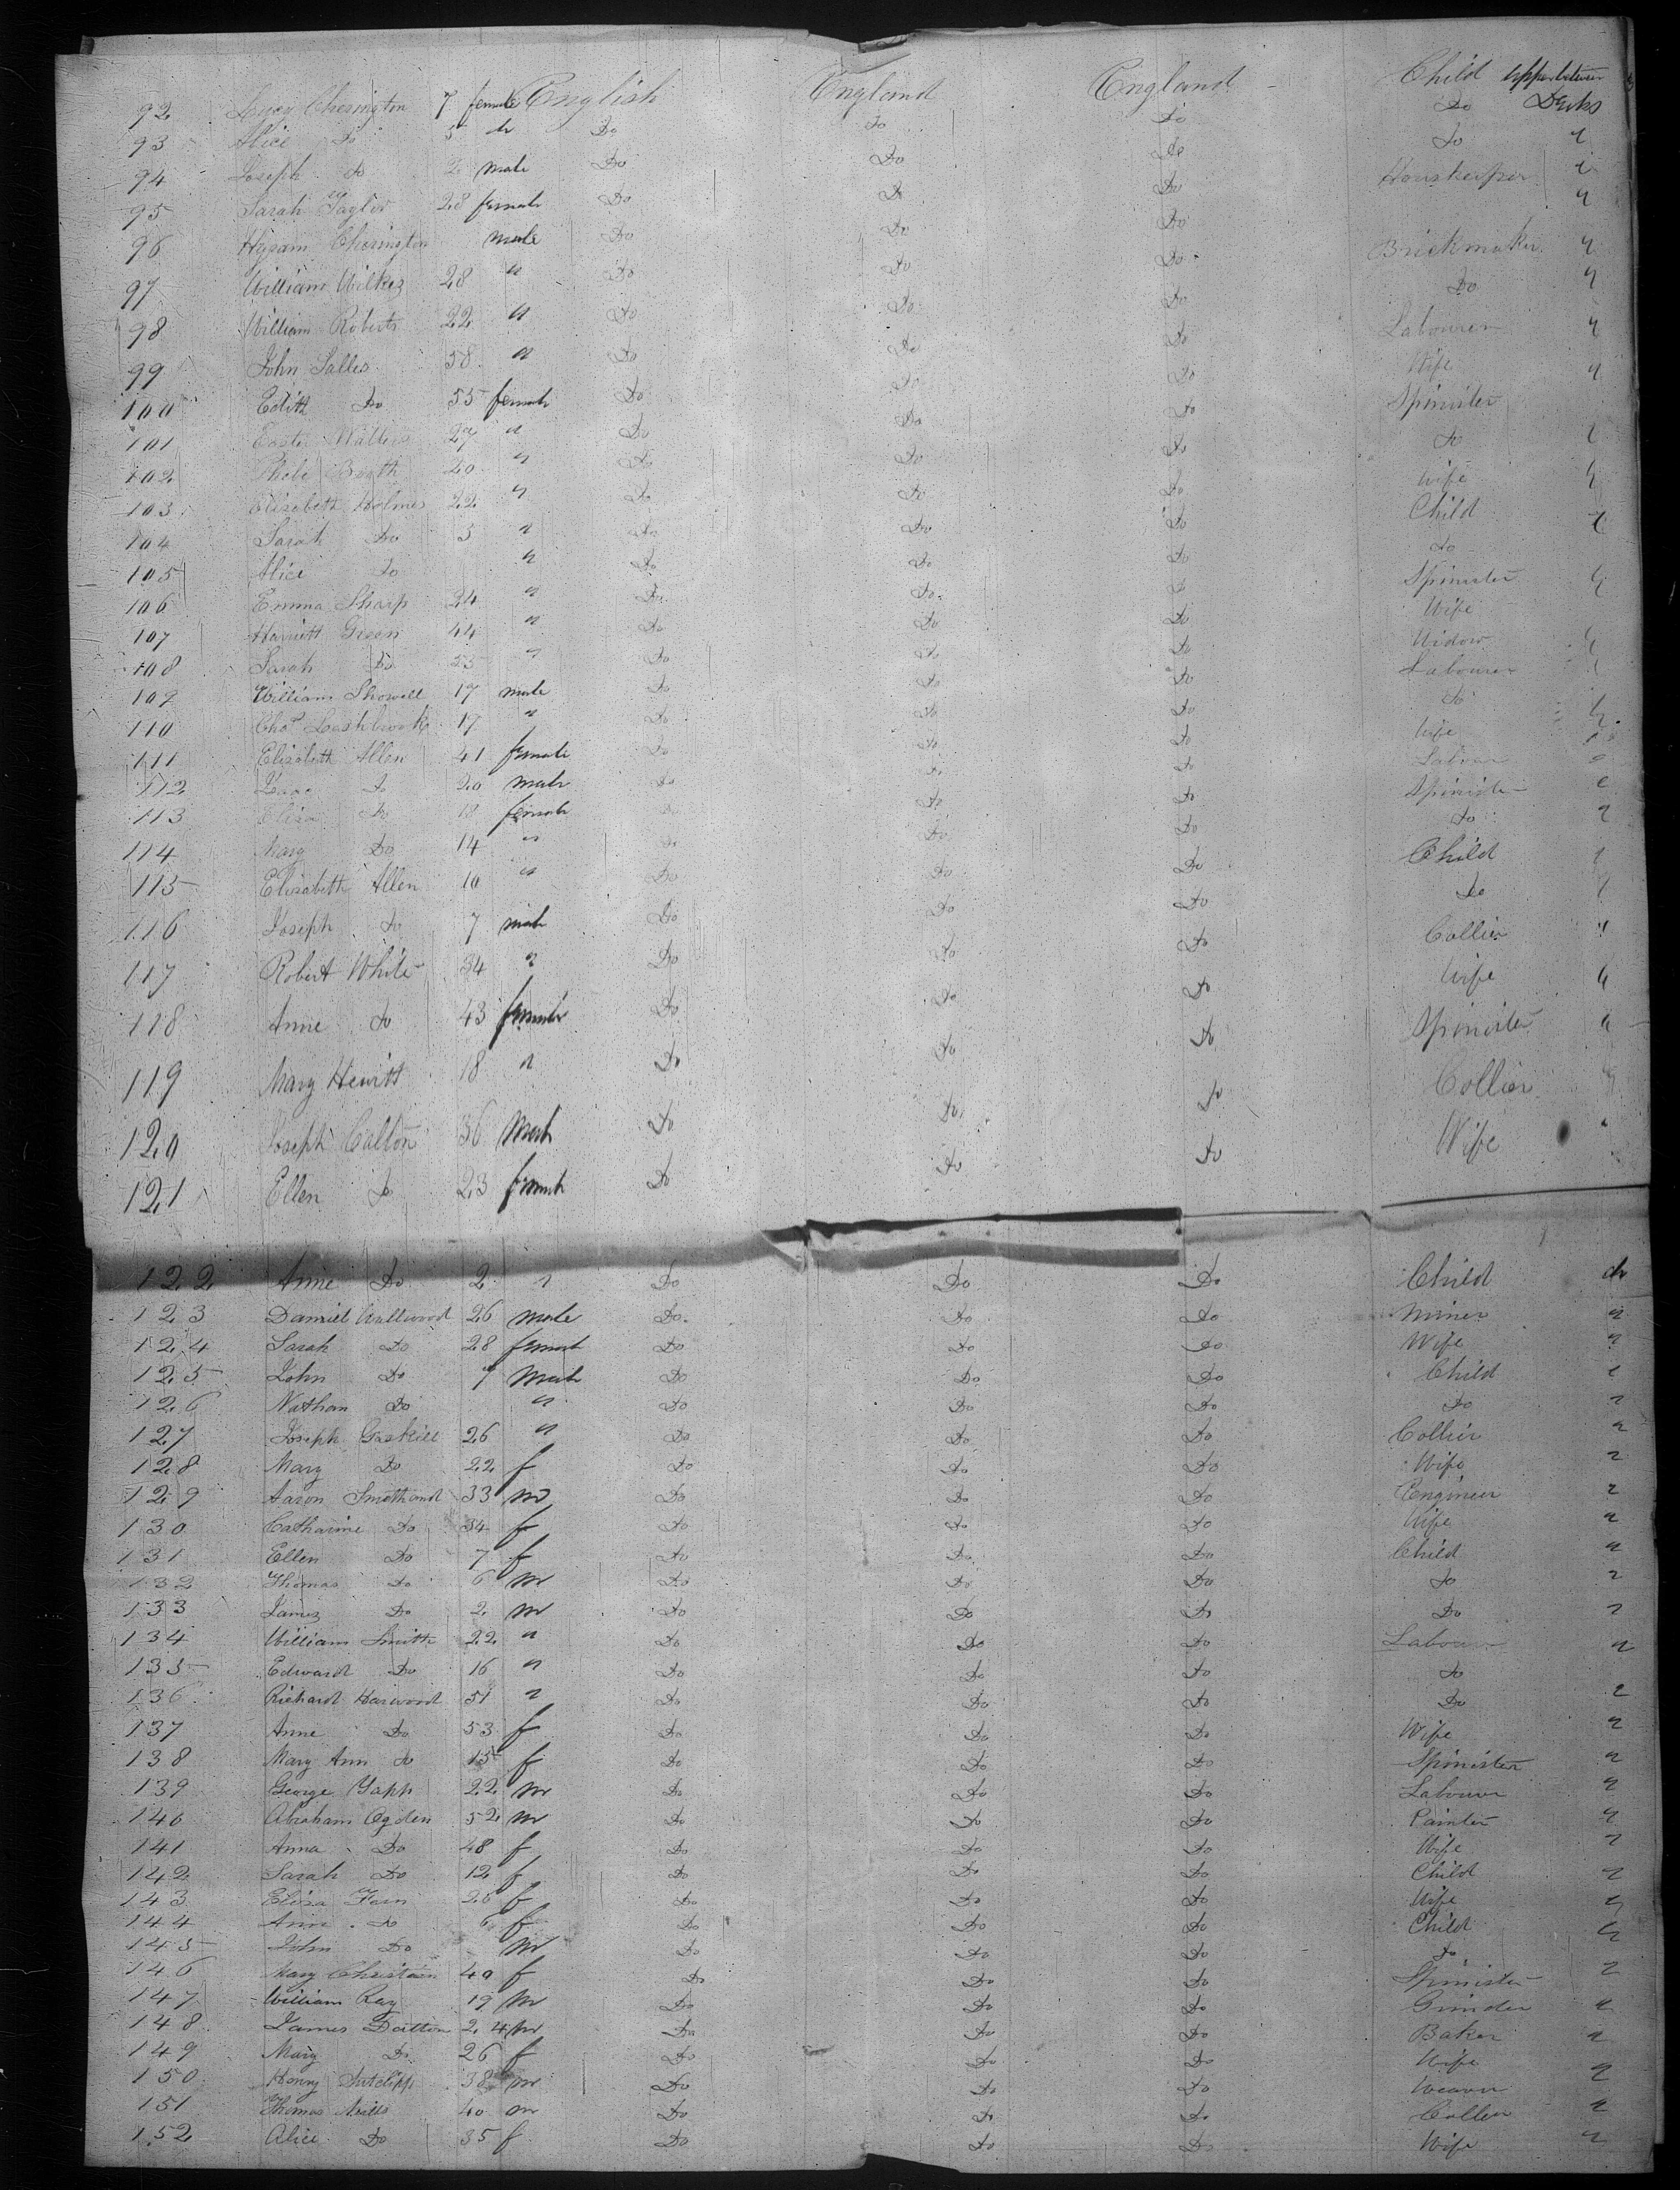 92 Lucy Cherington 7 female English England England Child Upper between
93 Alice Do 5 do Do Do Do Do Decks
94 Joseph Do 2 male Do Do Do Do "
95 Sarah Taylor 28 female Do Do Do Housekeeper "
96 Hyram Cherington male Do Do Do "
97 William Wilkes 28 " Do Do Do Brickmaker "
98 William Roberts 22 " Do Do Do Do "
99 John Salles 58 " Do Do Do Labourer "
100 Edith Do 55 female Do Do Do Wife "
101 Walters 27 " Do Do Do Spinister
102 Phebe Booth 40 " Do Do Do do "
103 Elisebeth Holmes 22 " Do Do Do Wife "
104 Sarah Do 3 " Do Do Do Child "
105 Alice Do " Do Do Do do
106 Emma Sharp 24 " Do Do Do Spinister "
107 Harriett Green 44 " Do Do Do Wife
108 Sarah Do 23 " Do Do Do Widow "
109 William Showell 17 male Do Do Do Labourer "
110 Lashbrook 17 " Do Do Do Do "
111 Elisabeth Allen 41 female Do Do Do Wife "
112 Isaac Do 20 male Do Do Do Labour "
113 Elisa Do 18 female Do Do Do Spinister "
114 Mary Do 14 " Do Do Do Do "
115 Elisabeth Allen 10 " Do Do Do Child "
116 Joseph Do 7 male Do Do Do Do "
117 Robert White 34 " Do Do Do Collier "
118 Anne Do 43 female Do Do Do Wife "
119 Mary Hewitt 18 " Do Do Do Spinister "
120 Joseph Calton 36 Male Do Do Do Collier "
121 Ellen Do 23 female Do Do Do Wife "
122 Anne Do 2 " Do Do Do Child do
123 Daniel 26 male Do Do Do Miner "
124 Sarah Do 28 female Do Do Do Wife "
125 John Do 7 Male Do Do Do Child "
126 Nathan Do " Do Do Do Do "
127 Joseph Gaskill 26 " Do Do Do Collier "
128 Mary Do 22 f Do Do Do Wife "
129 Aaron 33 m Do Do Do Engineer "
130 Catharine Do 34 f Do Do Do Wife "
131 Ellen Do 7 f Do Do Do Child "
132 Thomas Do 6 m Do Do Do Do "
133 James Do 2 m Do Do Do Do "
134 William Smith 22 " Do Do Do Labour "
135 Edward Do 16 " Do Do Do Do
136 Richard Harwood 51 " Do Do Do Do "
137 Anne Do 53 f Do Do Do Wife "
138 Mary Ann Do 15 f Do Do Do Spinister "
139 George Yapp 22 m Do Do Do Labourer "
140 Abraham Ogden 52 m Do Do Do Painter "
141 Anna Do 48 f Do Do Do Wife "
142 Sarah Do 12 f Do Do Do Child "
143 Elisa 26 f Do Do Do Wife "
144 Ann Do 6 f Do Do Do Child "
145 John Do m Do Do Do Do
146 Mary Christian 40 f Do Do Do Spinister "
147 William Ray 19 m Do Do Do Grinder "
148 James Dutton 24 m Do Do Do Baker "
149 Mary Do 26 f Do Do Do Wife
150 Henry Sutcliff 38 m Do Do Do Weaver "
151 Thomas 40 m Do Do Do Collier "
152 Alice Do 35 f Do Do Do Wife "